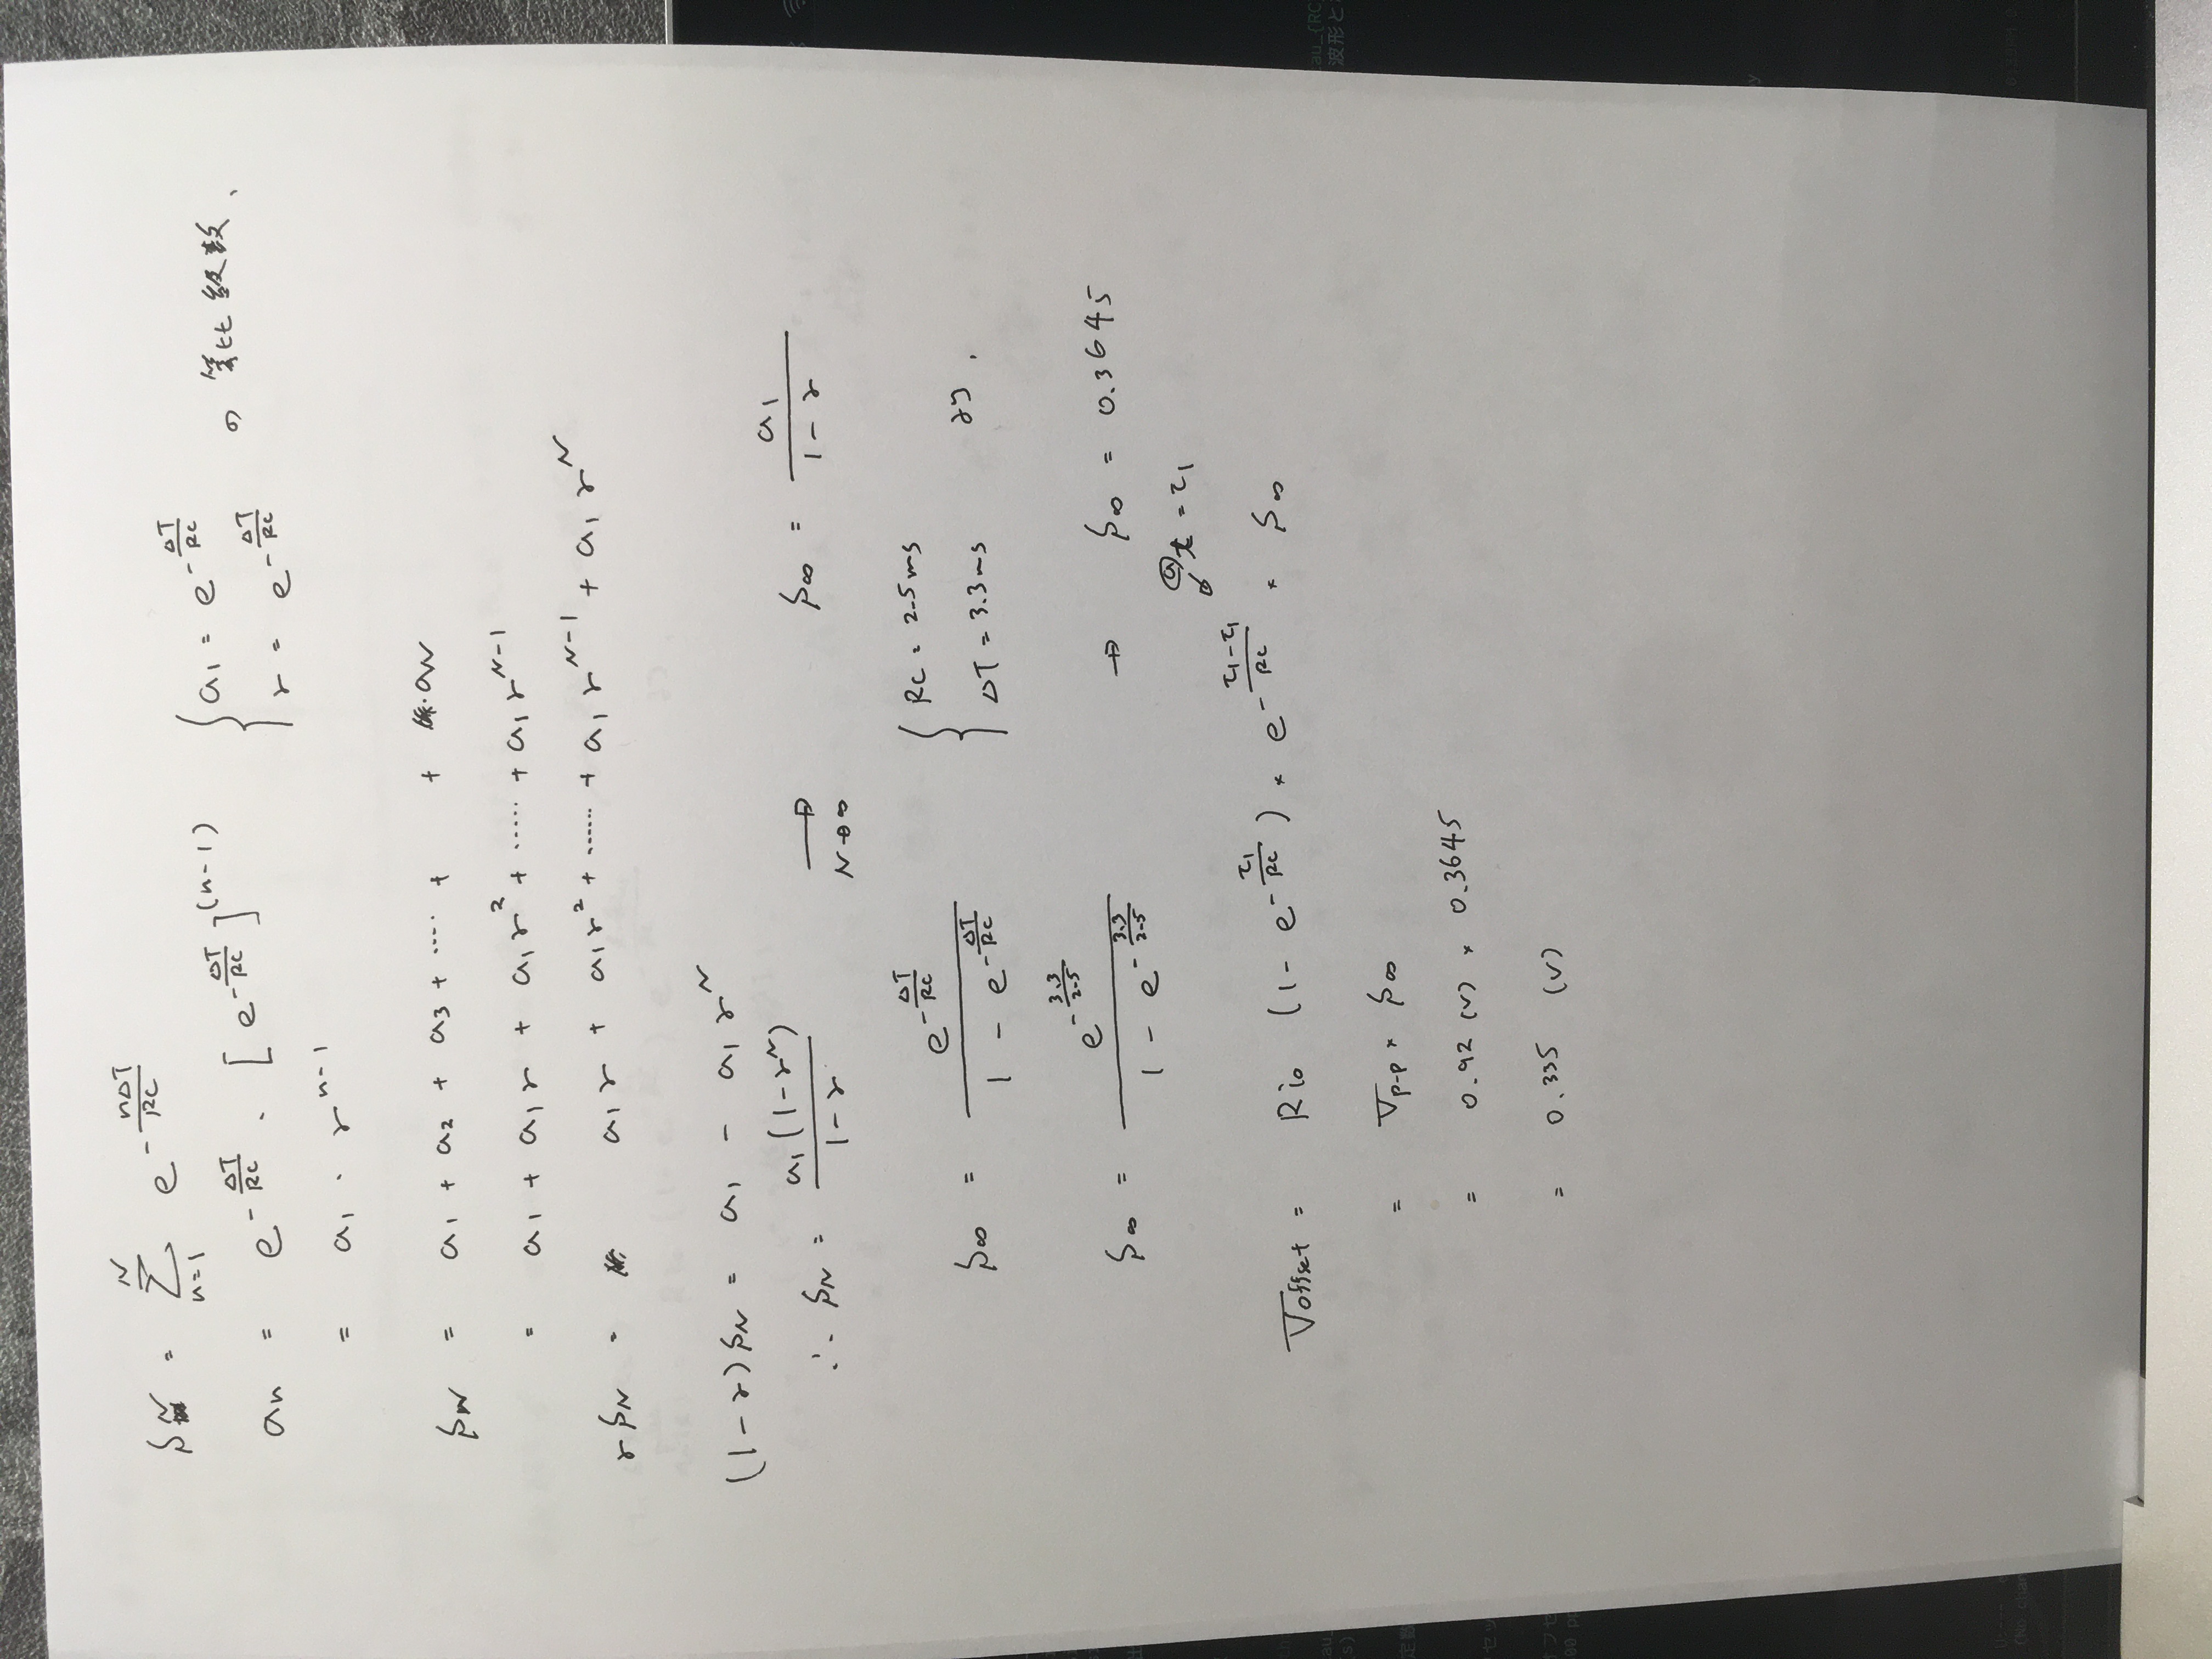 S_N = Σ_{n=1}^{N} e^{-nΔT/RC}
a_n = e^{-ΔT/RC} · [e^{-ΔT/RC}]^{(n-1)} { a_1 = e^{-ΔT/RC}, r = e^{-ΔT/RC} の等比級数、
= a_1 · r^{n-1}
S_N = a_1 + a_2 + a_3 + ····· + + a_N
= a_1 + a_1 r + a_1 r^2 + ····· + a_1 r^{N-1}
r S_N = a_1 r + a_1 r^2 + ······ + a_1 r^{N-1} + a_1 r^N
(1-r) S_N = a_1 - a_1 r^N
∴ S_N = a_1(1-r^N)/(1-r) → N→∞ S_∞ = a_1/(1-r)
S_∞ = e^{-ΔT/RC}/(1 - e^{-ΔT/RC}) { RC = 2.5ms, ΔT = 3.3ms より、
S_∞ = e^{-3.3/2.5}/(1 - e^{-3.3/2.5}) → S_∞ = 0.3645
@t = τ_1
V_offset = R i_0 (1 - e^{-τ_1/RC}) × e^{-(τ_1-τ_1)/RC} × S_∞
= V_{p-p} × S_∞
= 0.92 (V) × 0.3645
= 0.335 (V)